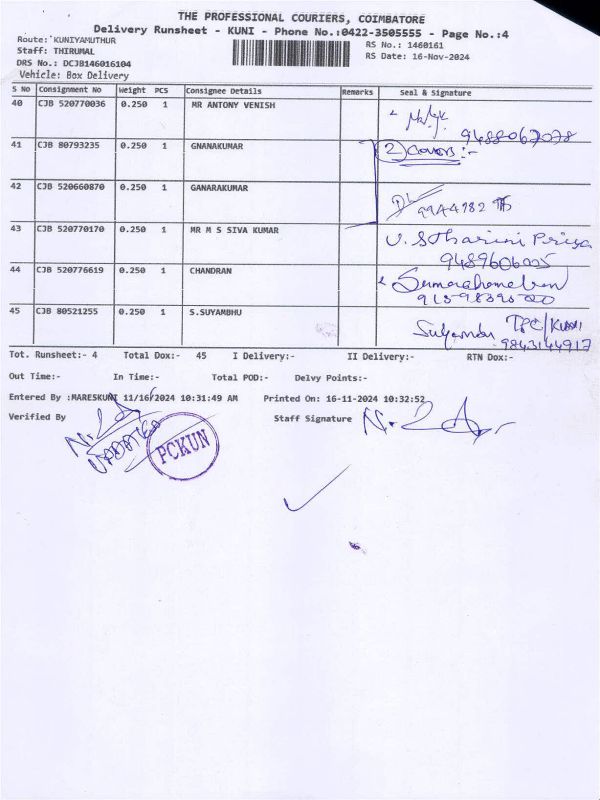 THE PROFESSIONAL COURIERS, COIMBATORE
Delivery Runsheet - KUNI - Phone No.:0422-3505555 - Page No.:4
Route: KUNIYAMUTHUR
RS No.: 1460161
Staff: THIRUMAL
RS Date: 16-Nov-2024
DRS No.: DCJB146016104
Vehicle: Box Delivery
S No Consignment No Weight PCS Consignee Details Remarks Seal & Signature
40 CJB 520770036 0.250 1 MR ANTONY VENISH
41 CJB 80793235 0.250 1 GNANAKUMAR 2) Covers :-
42 CJB 520660870 0.250 1 GANARAKUMAR
43 CJB 520770170 0.250 1 MR M S SIVA KUMAR U. S Tharini Priya
9489606005
44 CJB 520776619 0.250 1 CHANDRAN
45 CJB 80521255 0.250 1 S.SUYAMBHU Suyambu TPC/KUNI
9843144917
Tot. Runsheet:- 4 Total Dox:- 45 I Delivery:- II Delivery:- RTN Dox:-
Out Time:- In Time:- Total POD:- Delvy Points:-
Entered By :MARESKUNI 11/16/2024 10:31:49 AM Printed On: 16-11-2024 10:32:52
Verified By Staff Signature
UPDATED
PCKUN